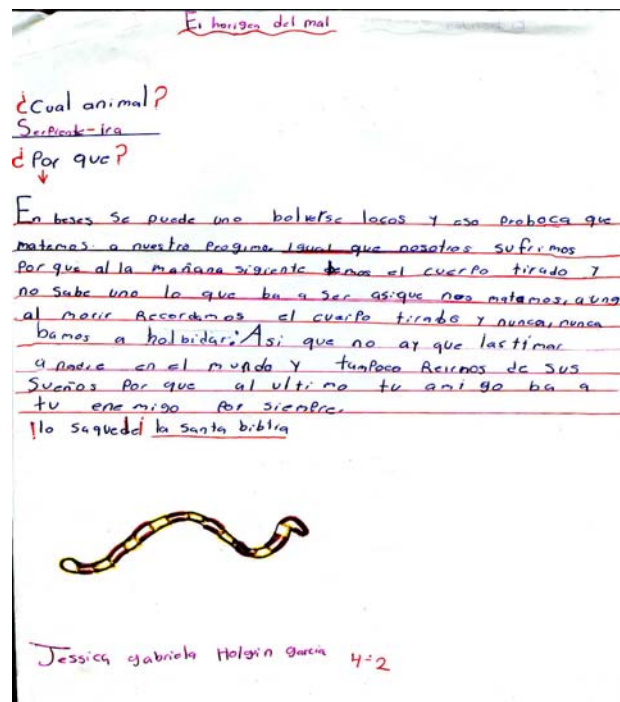 El horigen del mal
¿Cual animal?
Serpiente-ira
¿Por que?
En beses se puede uno bolverse locos y eso proboca que
matemos a nuestro Progimo igual que nosotros sufrimos
Porque al la mañana sigiente temos el cuerpo tirado y
no sabe uno lo que ba a ser asique nos matamos, aung
al morir Recordamos el cuerpo tirado y nunca, nunca
bamos a holbidar: Asi que no ay que lastimar
a nadie en el mundo y tampoco Reirnos de sus
Sueños Por que al ultimo tu amigo ba a
tu enemigo Por siempre.
lo saquedel la santa biblia
Jessica gabriela Holgin garcia 4-2